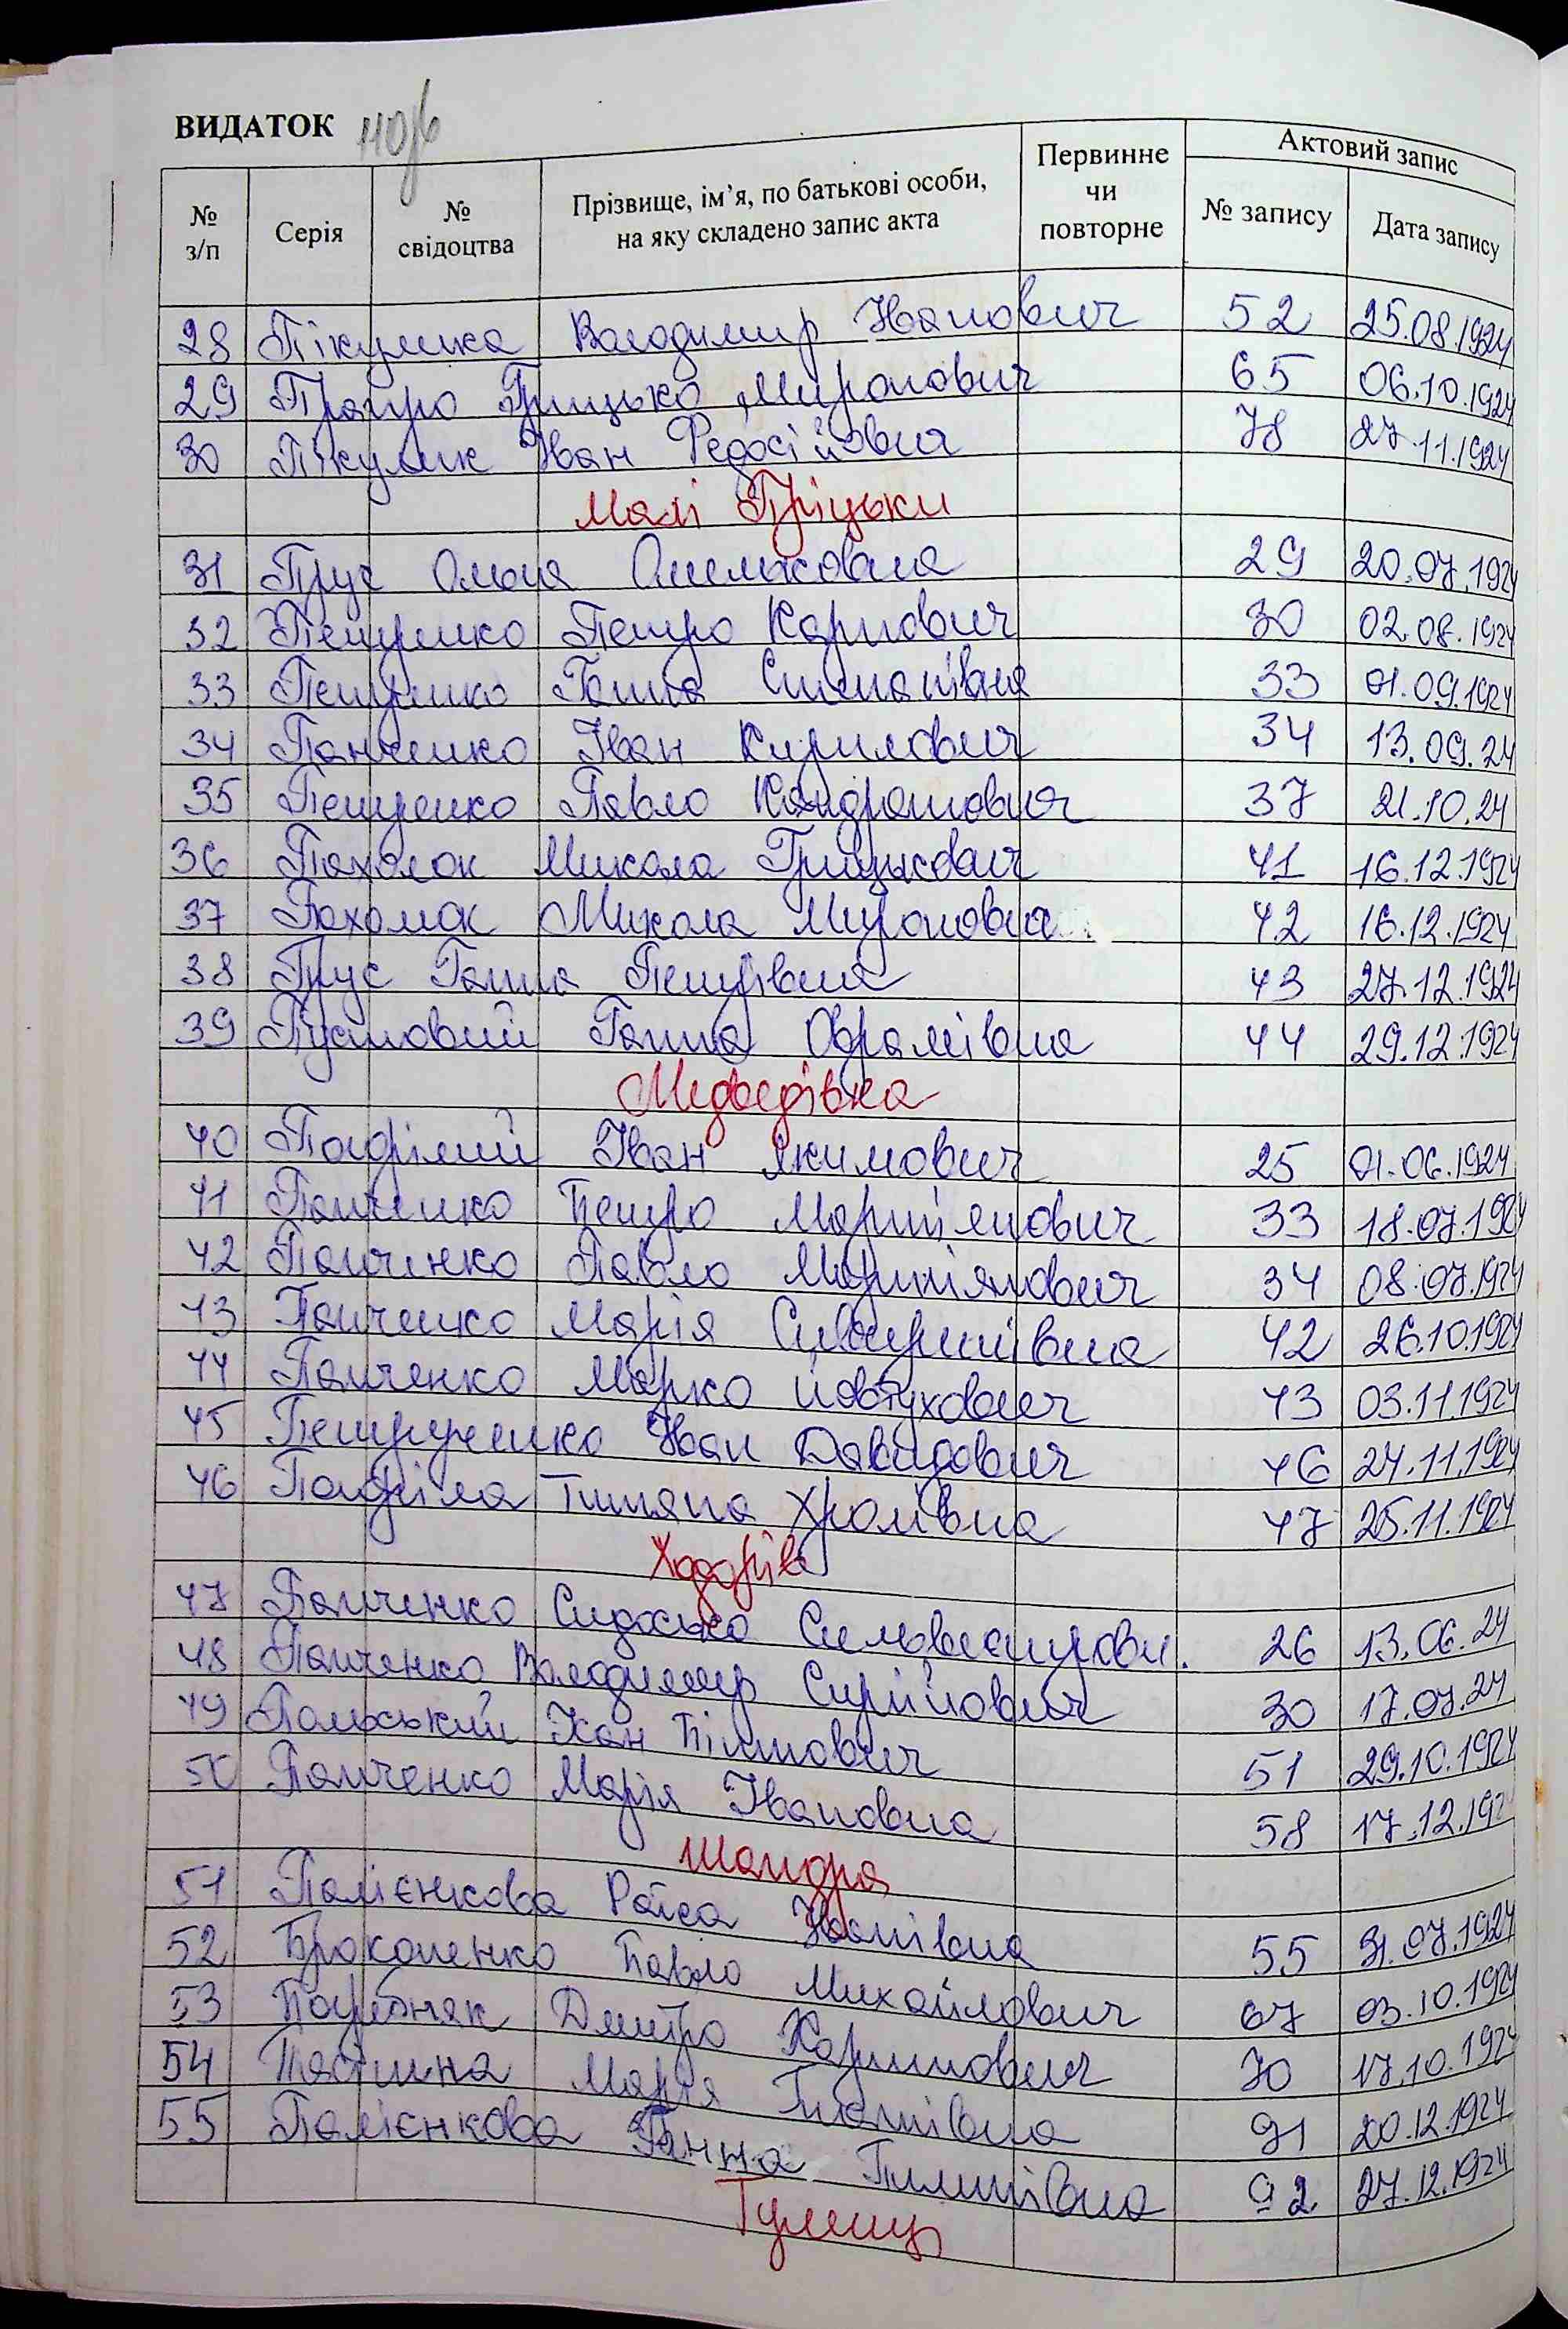 ВИДАТОК
№ з/п Серія № свідоцтва Прізвище, ім’я, по батькові особи, на яку складено запис акта Первинне чи повторне Актовий запис № запису Дата запису
28 Пікулика Володимир Іванович 52 25.08.1924
29 Грицько Миронович 65 06.10.1924
30 Пікулик Іван Федосійович 78 27.11.1924
Малі Пріцьки
31 Прус Ольга Омельковна 29 20.07.1924
32 Петренко Петро Карпович 30 02.08.1924
33 Петренко Ганна Степанівна 33 01.09.1924
34 Панченко Іван Кирилович 34 13.09.24
35 Петренко Павло Кондратович 37 21.10.24
36 Пахолок Микола Грицькович 41 16.12.1924
37 Пахолок Микола Миронович 42 16.12.1924
38 Прус Ганна Петрівна 43 27.12.1924
39 Пустовий Ганна Оврамівна 44 29.12.1924
Медведівка
40 Іван Якимович 25 01.06.1924
41 Панченко Петро Мартіянович 33 18.07.1924
42 Панченко Павло Мартіянович 34 08.07.1924
43 Панченко Марія 42 26.10.1924
44 Панченко Марко Йовтухович 43 03.11.1924
45 Петрученко Іван Давидович 46 24.11.1924
46 Тетяна Хромівна 47 25.11.1924
Ходорів
47 Панченко Сидосько Сильвестрови. 26 13.06.24
48 Панченко Володимир Сергійович 30 17.07.24
49 Польський Хан Пілипович 51 29.10.1924
50 Панченко Марія Івановна 58 17.12.192
Шандра
51 Палієнкова Раїса Іванівна 55 31.07.1924
52 Прокопенко Павло Михайлович 67 03.10.1924
53 Погребняк Дмитро Харитонович 70 17.10.1924
54 Марія Гнатівна 91 20.12.1924
55 Палієнкова Ганна Пилипівна 92 27.12.1924
Тулинці